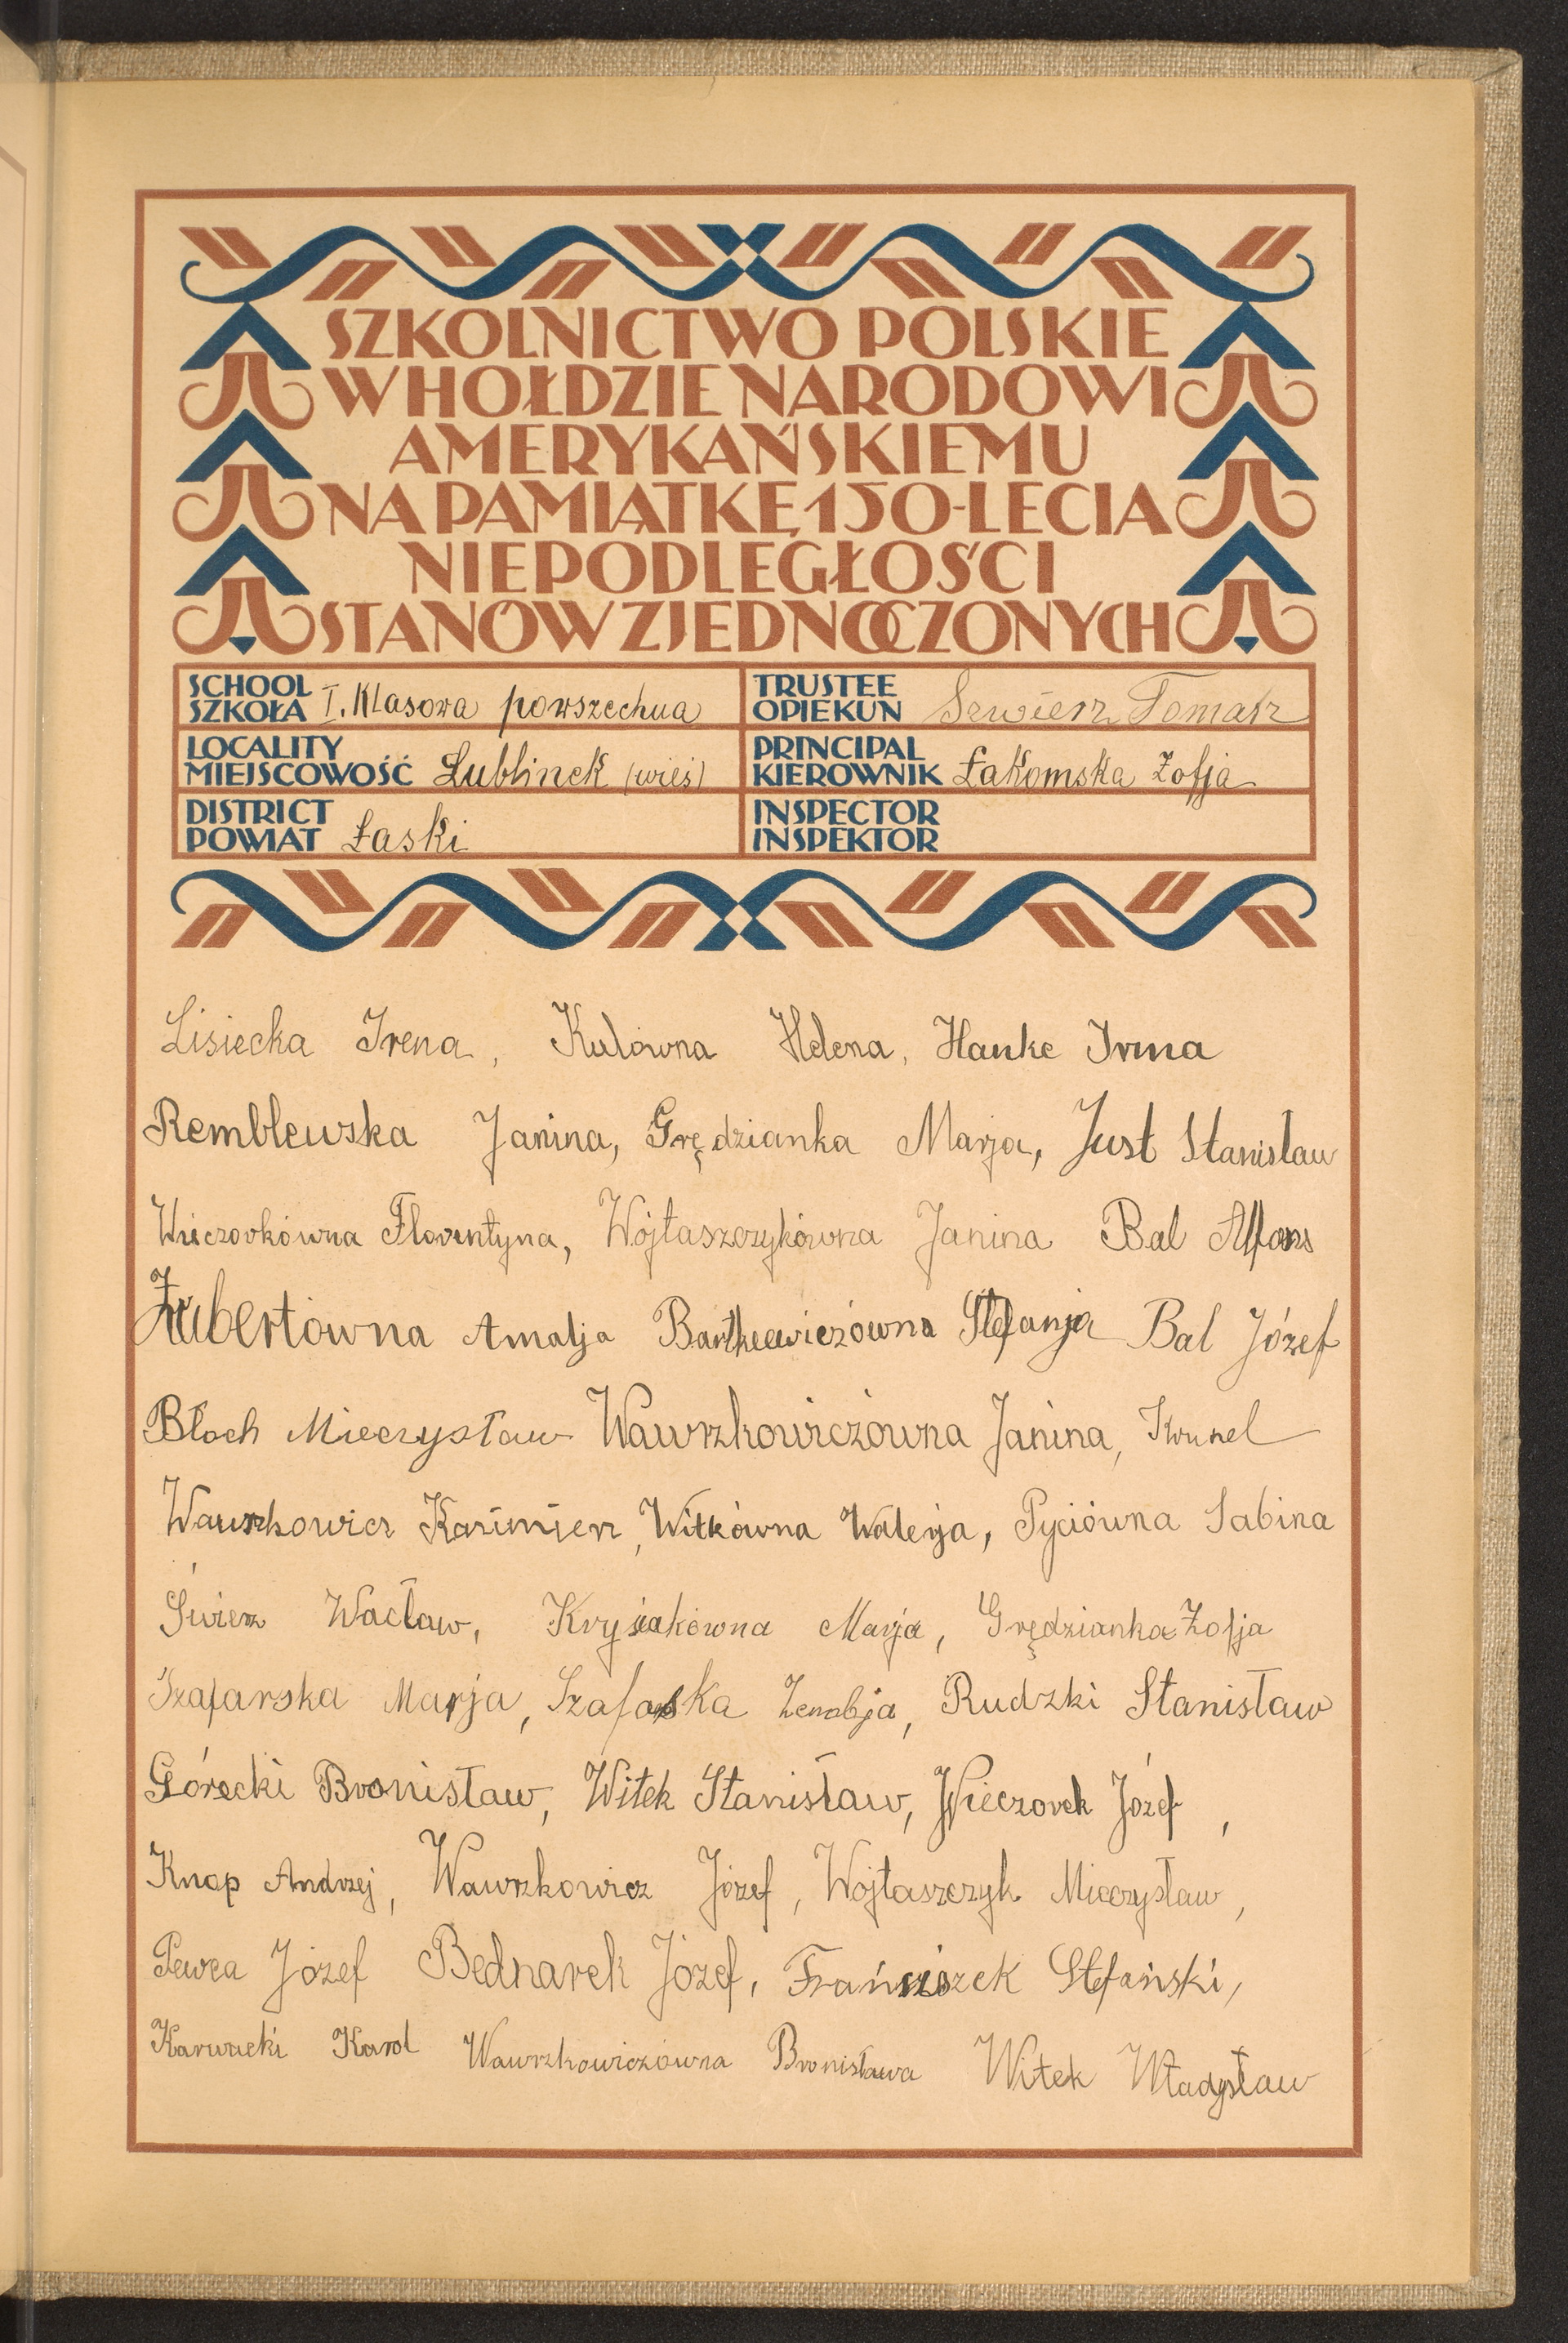 SZKOLNICTWO POLSKIE
W HOŁDZIE NARODOWI
AMERYKAŃSKIEMU
NA PAMIĄTKĘ 150-LECIA
NIEPODLEGŁOŚCI
STANÓW ZJEDNOCZONYCH
SCHOOL
SZKOŁA I. Klasowa powszechna
TRUSTEE
OPIEKUN Sewierz Tomasz
LOCALITY
MIEJSCOWOŚĆ Lublinek (wieś)
PRINCIPAL
KIEROWNIK Łakomska Zofja
DISTRICT
POWIAT Łaski
INSPECTOR
INSPEKTOR
Lisiecka Irena, Kulówna Helena, Hanke Irma
Remblewska Janina, Grędzianka Marja, Just Stanisław
Wieczorkówna Florentyna, Wojtaszczykówna Janina Bal Alfons
Hubertówna Amalja Bartkiewiczówna Stefanja Bal Józef
Błoch Mieczysław Wawrzkowiczówna Janina,
Wawrzkowicz Kazimierz, Witkówna Walerja, Pyciówna Sabina
Świerz Wacław, Krysiakówna Marja, Grędzianka Zofja
Szafarska Marja, Szafarska Zenobja, Rudzki Stanisław
Górecki Bronisław, Witek Stanisław, Wieczorek Józef,
Knap Andrzej, Wawrzkowicz Józef, Wojtaszczyk Mieczysław,
Pewca Józef Bednarek Józef, Franciszek Stefański,
Karwacki Karol Wawrzkowiczówna Bronisława Witek Władysław